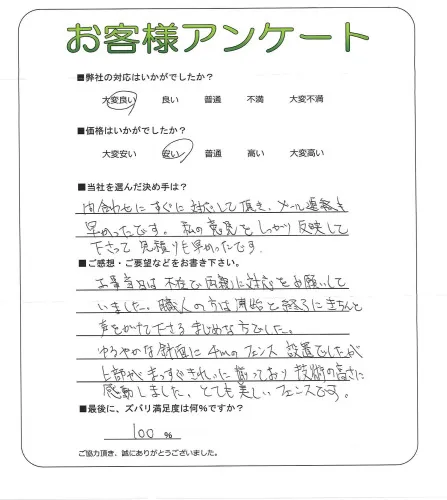 お客様アンケート
■弊社の対応はいかがでしたか?
大変良い 良い 普通 不満 大変不満
■価格はいかがでしたか?
大変安い 安い 普通 高い 大変高い
■当社を選んだ決め手は?
問合わせにすぐに対応して頂き、メール連絡も
早かったです。私の意見をしっかり反映して
下さって見積りも早かったです.
■ご感想・ご要望などをお書き下さい。
工事当日は不在で両親に対応をお願いして
いました。職人の方は開始と終了にきちんと
声をかけて下さるまじめな方でした。
ゆるやかな斜面に4mのフェンス設置でしたが
上部がまっすぐきれいに揃っており技術の高さに
感動しました、とても美しいフェンスです。
■最後に、ズバリ満足度は何%ですか?
100 %
ご協力頂き、誠にありがとうございました。